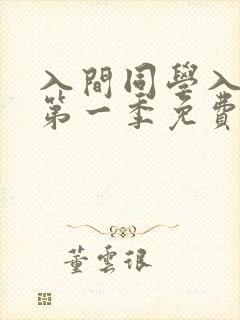 入間同學入
第一季免費
董雲很